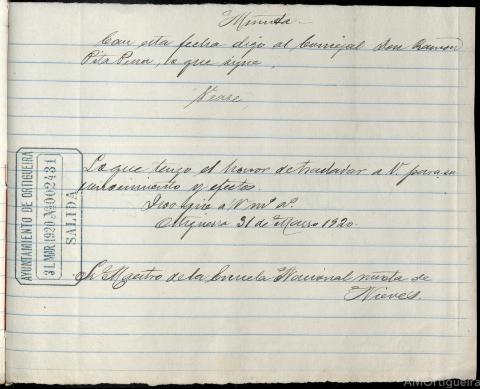 Minuta
Con esta fecha digo al Concejal Don Ramón
Pita Pena, lo que sigue.
Vease,
Lo que tengo el honor de trasladar a V. para su
conocimiento y efectos.
Dios gue a V. m.s a.s
Ortigueira 31 de Marzo 1920.
Sr. Maestro de la Escuela Nacional mixta de
Nieves.
AYUNTAMIENTO DE ORTIGUEIRA
31.MAR 1920 A 002431
SALIDA
AMOrtigueira